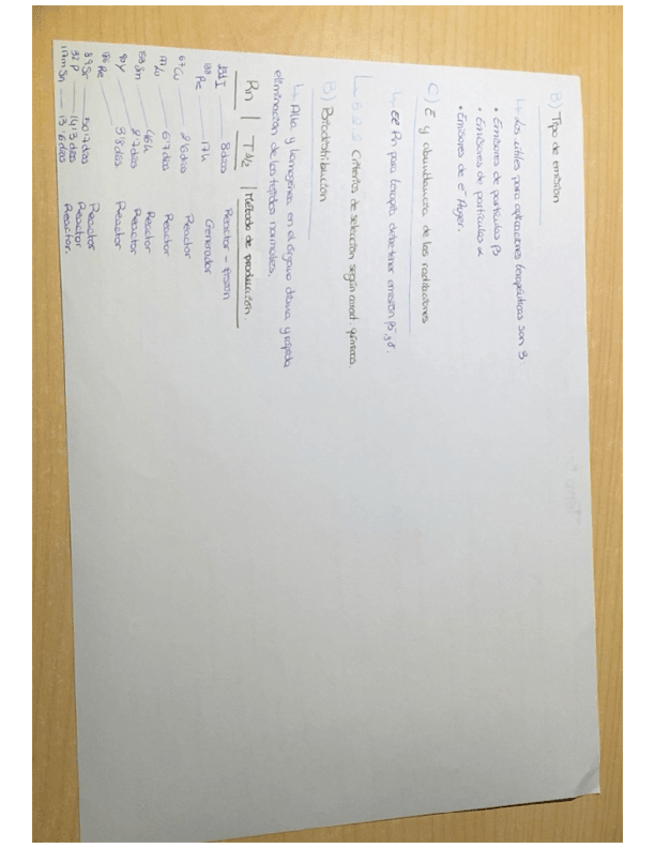 B) Tipo de emisión
↳ Los útiles para aplicaciones terapéuticas son 3
• Emisores de partículas β
• Emisores de partículas α
• Emisores de e⁻ Auger.
C) E y abundancia de las radiaciones
↳ El Rn para terapia debe tener emisión β⁻ y γ.
5.2.2 Criterios de selección según caract. químicas.
B) Biodistribución
↳ Alta y homogénea en el órgano diana y rápida
eliminación de los tejidos normales.
Rn | T 1/2 | Método de producción.
131 I 8 días Reactor - fisión
188 Re 17h Generador
67 Cu 2'6 días Reactor
177 Lu 6'7 días Reactor
153 Sm 46h Reactor
90 Y 2'7 días Reactor
186 Re 3'8 días Reactor
89 Sr 50'7 días Reactor
32 P 14'3 días Reactor
117m Sn 13'6 días Reactor.